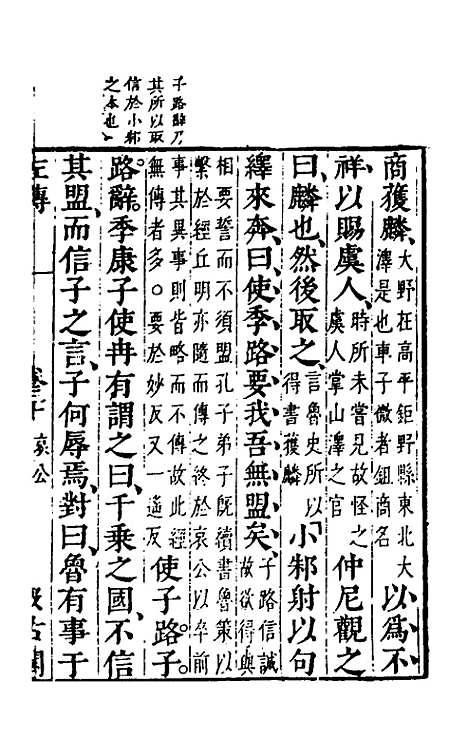 子路辭乃
其所以取
信於小邾
之本也
商獲麟大野在高平鉅野縣東北大澤是也車子微者鉏商名以爲不
祥以賜虞人時所未嘗見故怪之虞人掌山澤之官仲尼觀之
曰麟也然後取之言魯史所以得書獲麟小邾射以句
繹來奔曰使季路要我吾無盟矣子路信誠故欲得與
相要誓而不須盟孔子弟子既續書魯策以繫於經丘明亦隨而傳之終於哀公以卒前
事其異事則皆略而不傳故此經無傳者多。要於妙反又一遙反使子路子
路辭季康子使冉有謂之曰千乘之國不信
其盟而信子之言子何辱焉對曰魯有事于
左傳
哀公